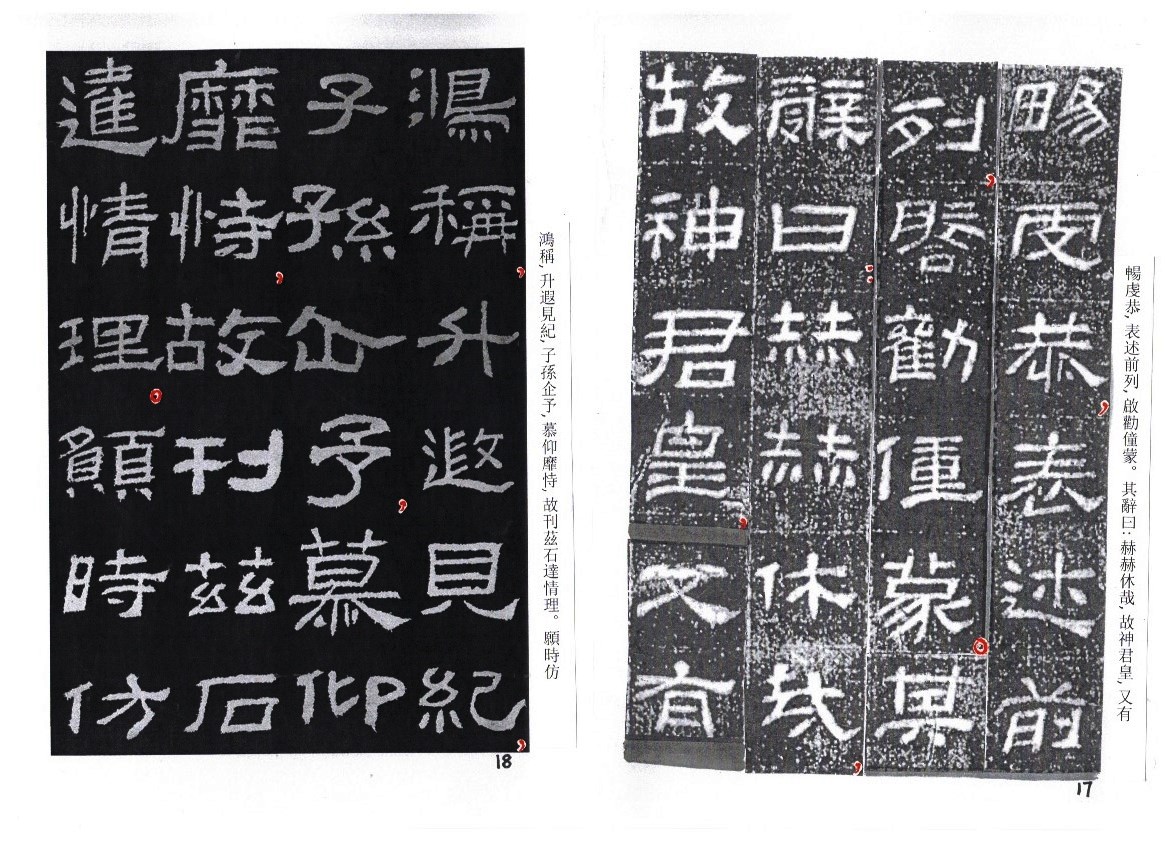 暢虔恭,表述前列,啟勸僮蒙。其辭曰:赫赫休哉,故神君皇,又有
暢虔恭,表述前
列,啟勸僮蒙。其
辭曰:赫赫休哉,
故神君皇,又有
17
鴻稱,升遐見紀,子孫企予,慕仰靡恃,故刊茲石達情理。願時仿
鴻稱,升遐見紀,
子孫企予,慕仰
靡恃,故刊茲石
達情理。願時仿
18